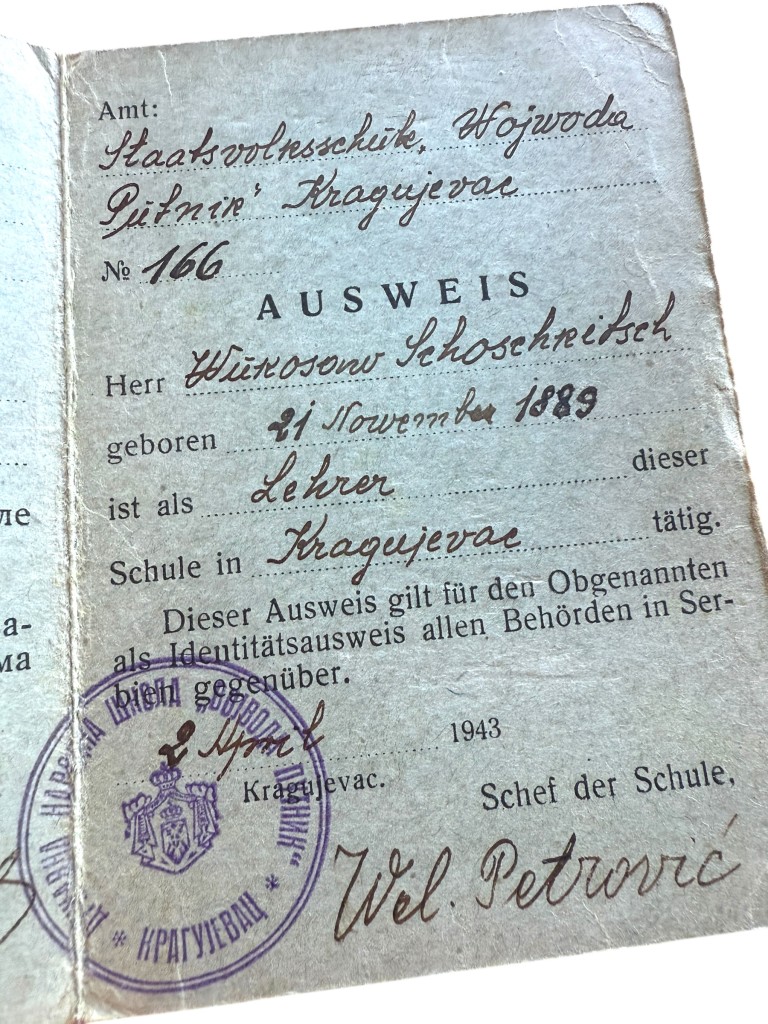 Amt:
Staatsvolksschule, Wojwoda
Putnik" Kragujevac
№ 166
AUSWEIS
Herr Wukosaw Schoschkitsch
geboren 21 November 1889
ist als Lehrer dieser
Schule in Kragujevac tätig.
Dieser Ausweis gilt für den Obgenannten
als Identitätsausweis allen Behörden in Ser-
bien gegenüber.
2 April 1943
Kragujevac.
Schef der Schule,
Wel. Petrović
ДРЖАВНА НАРОДНА ШКОЛА „ВОЈВОДА ПУТНИК“
* КРАГУЈЕВАЦ *
ле
ва-
ма